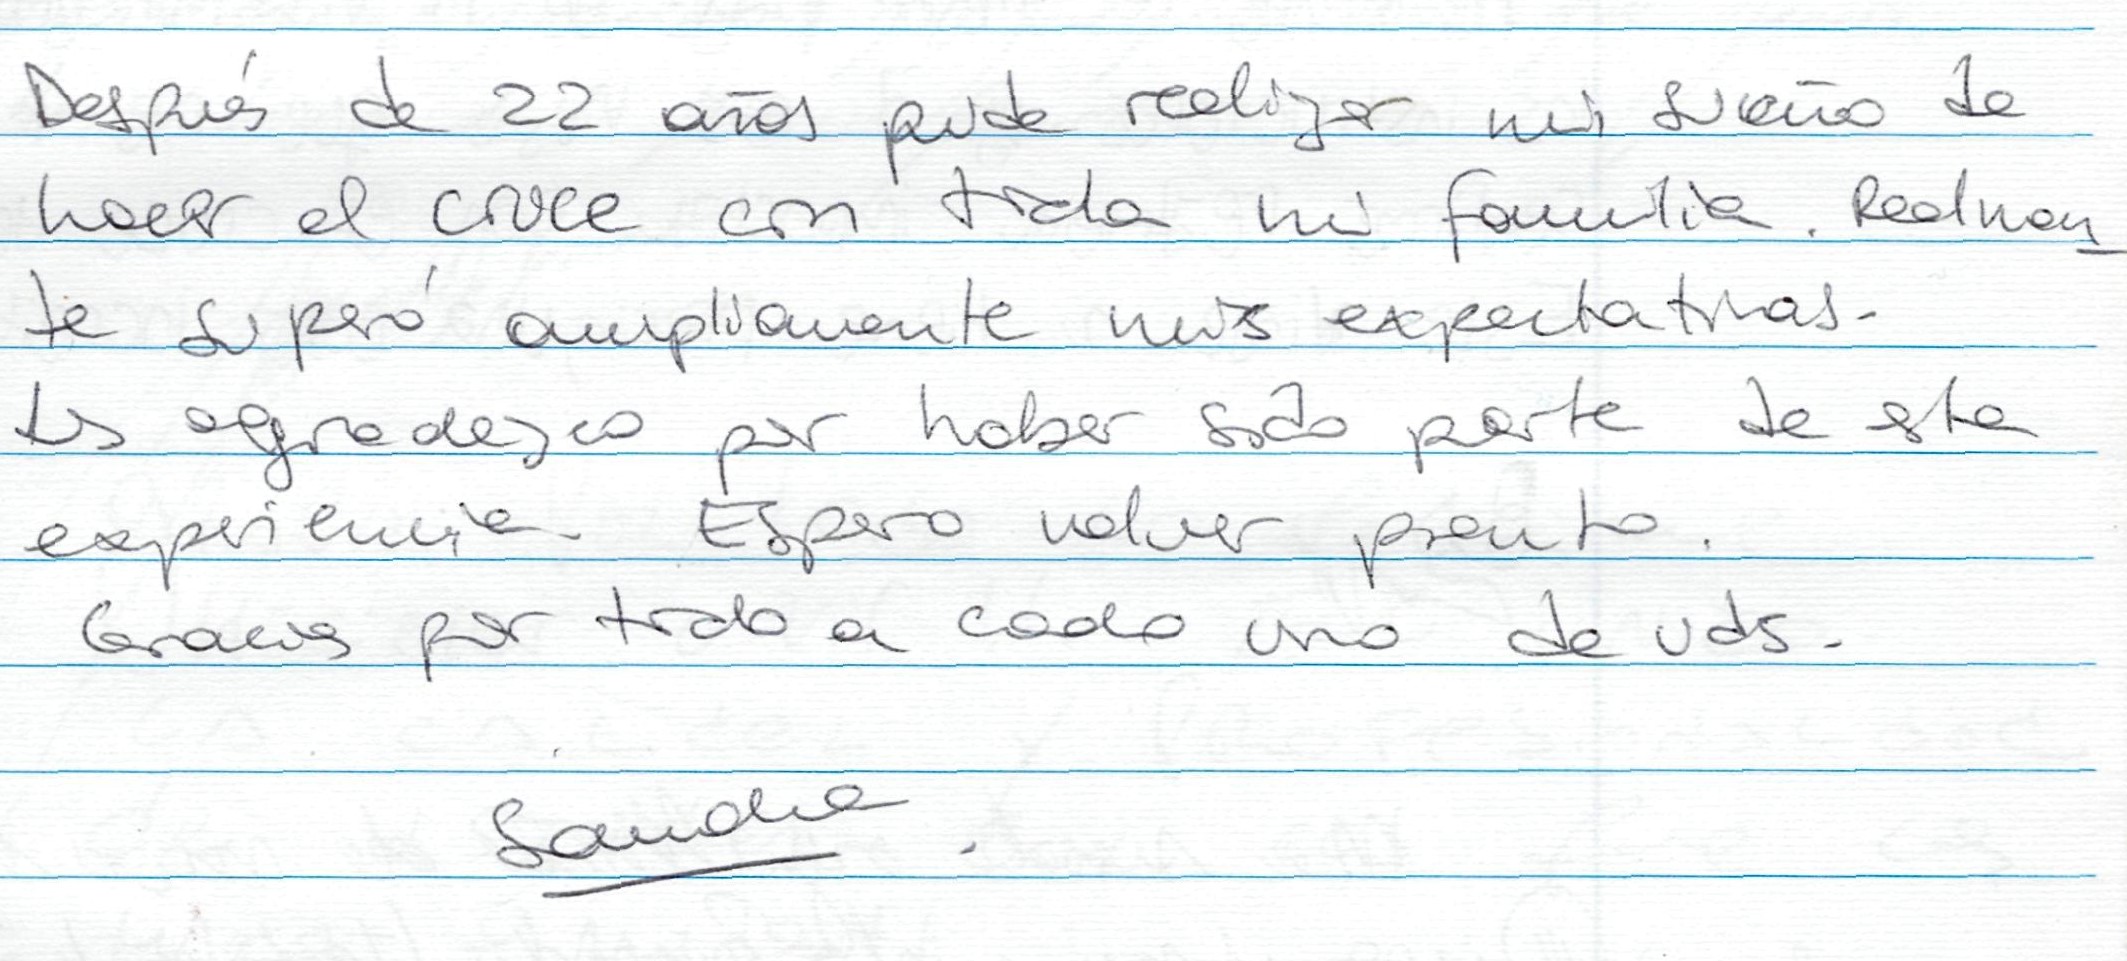 Después de 22 años pude realizar mi sueño de
hacer el cruce con toda mi familia. Realmen_
te superó ampliamente mis expectativas.
Les agradezco por haber sido parte de esta
experiencia. Espero volver pronto.
Gracias por todo a cada uno de uds.
Sandra.